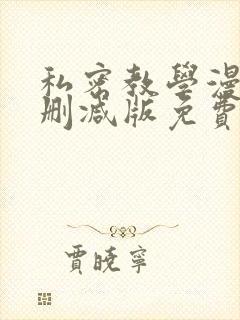 私密教學漫
刪減版免費
賈曉寧